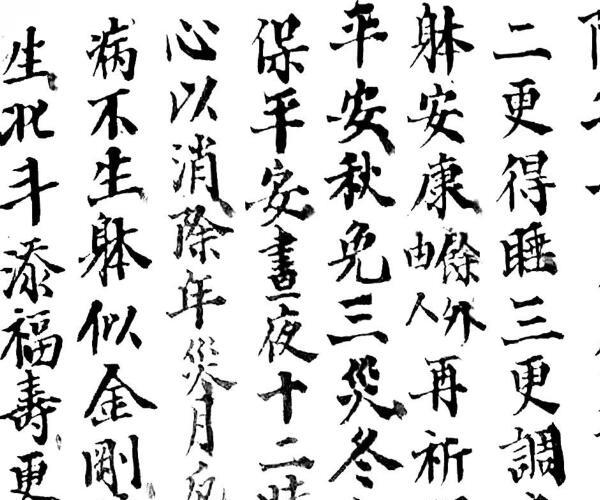 二更得睡三更調
躰安康餘外由人再祈
平安秋免三災冬
保平安晝夜十二時
心以消除年災月
病不生躰似金剛
生北斗添福壽更